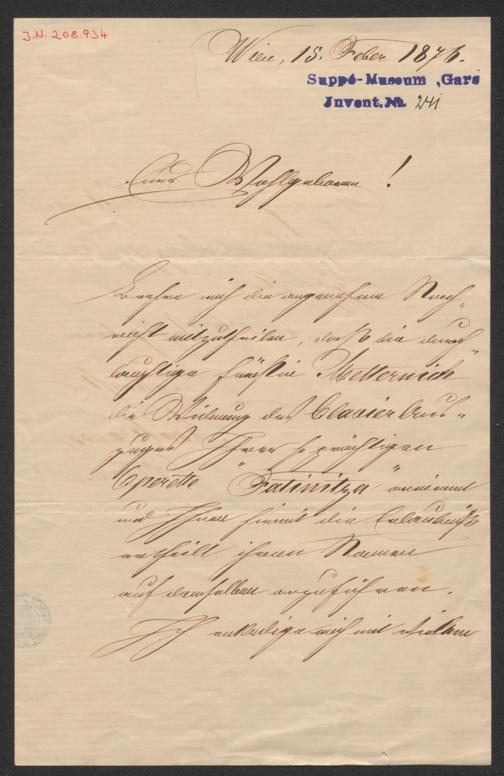 J.N. 208.934
Wien, 15. Feber 1876.
Suppé-Museum, Gars
Invent. Nr. 241
Euer Wohlgeboren!
Beehre mich die angenehme Nach-
richt mitzutheilen, daß die durch
lauchtige Fürstin "Metternich"
die Widmung des Clavier Aus-
zuges Ihrer so prächtigen
Operette "Fatinitza" annimmt
und Ihnen hiemit die Erlaubniß
ertheilt ihren Namen
auf demselben anzuführen.
Ich entledige mich mit vielem